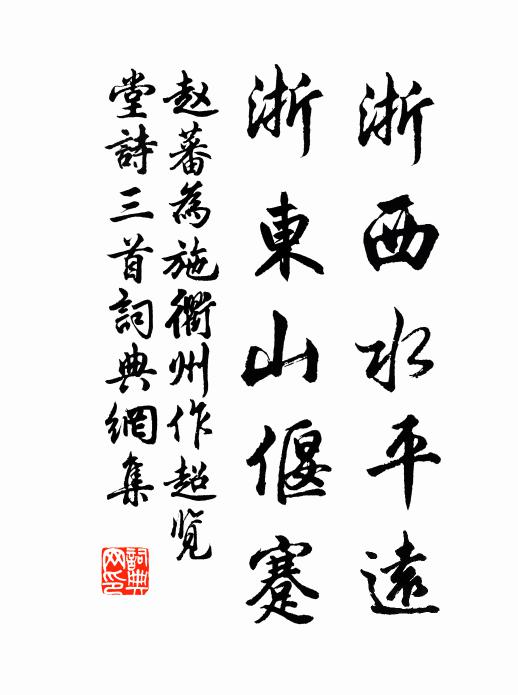 浙西水平遠
浙東山偃蹇
赵蕃為施衢州作超览
堂詩三首詞典網集
詞典網印